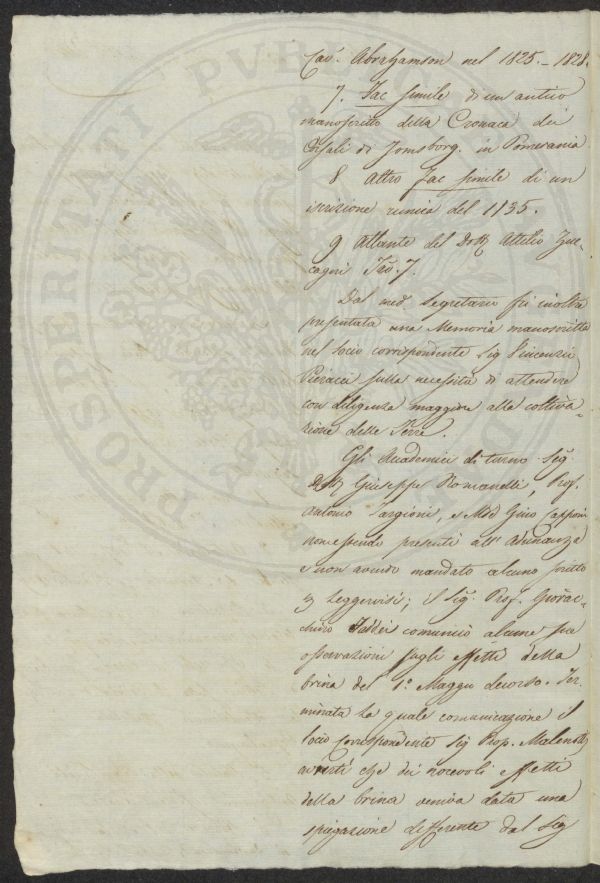 Cav.r Abrahamson nel 1825. - 1828.
7. Fac simile di un antico
manoscritto della Cronaca dei
di Jomsborg. in Pomerania
8 Altro Fac simile di un
iscrizione runica del 1135.
9 Atlante del Dott Attilio Zuc-
cagni
Dal med. Segretario fu inoltre
presentata una Memoria manoscritta
nel Socio corrispondente Sig Vincenzio
Pieracci sulla necessità di attendere
con diligenza maggiore alla coltiva-
zione delle Terre.
Gli Academici di turno Sig
Dott Giuseppe Romanelli, Prof.
Antonio Targioni, e Mse Gino Capponi
non essendo presenti all' Adunanza
e non avendo mandato alcuno scritto
leggervisi; il Sig. Prof. Giovac-
chino Taddei comunicò alcune sue
osservazioni sugli effetti della
brina del 1.o Maggio decorso. Ter-
minata la quale comunicazione il
Socio Corrispondente Sig Prop. Malenotti
avvertì che dei nocevoli effetti
della brina veniva data una
spiegazione differente dal Sig
PROSPERITATI PUBLICAE